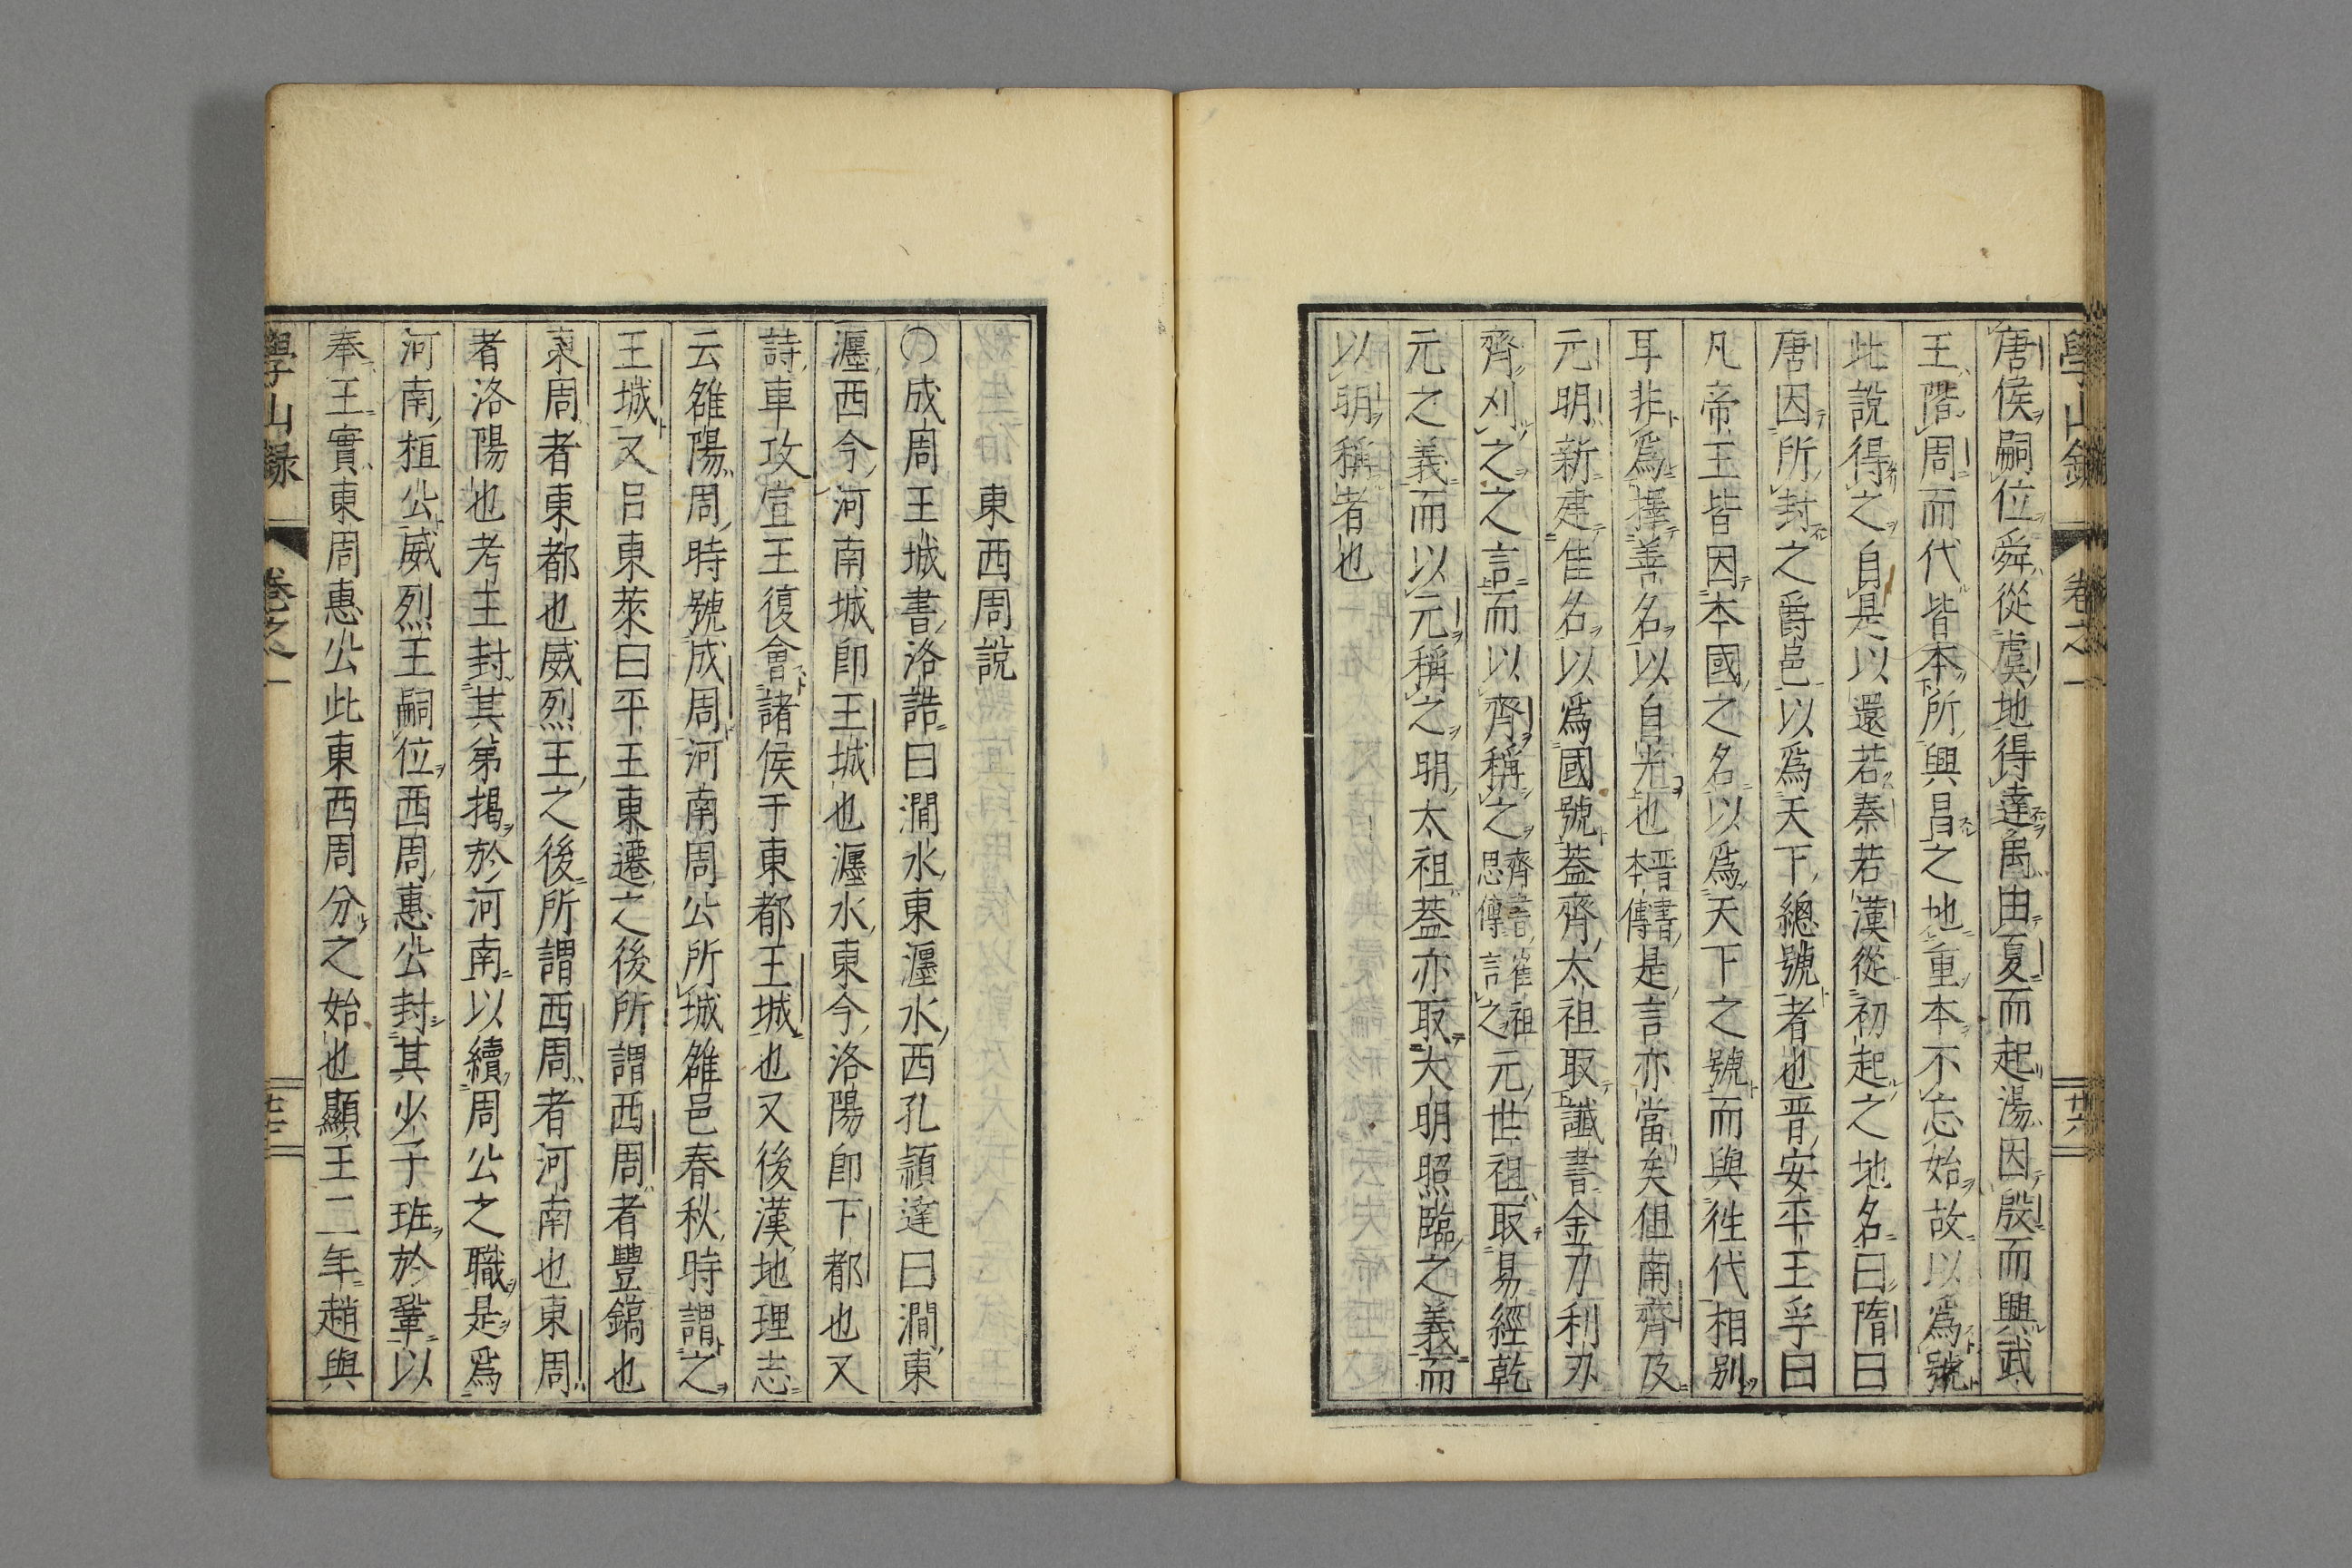 學山錄 卷之一 廿六
唐侯嗣位舜從虞地得達禹由夏而起湯因殷而興武
王階周而代皆本所興昌之地重本不忘始故以爲號
此說得之自是以還若秦若漢從初起之地名曰隋曰
唐因所封之爵邑以爲天下總號者也晋安平王孚曰
凡帝王皆因本國之名以爲天下之號而與徃代相別
耳非爲擇善名以自光也晋書本傳是言亦當矣但南齊及
元明新建佳名以爲國號蓋齊太祖取讖書金刀利刃
齊刈之之言而以齊稱之齊書崔祖思傳言之元世祖取易經乾
元之義而以元稱之明太祖蓋亦取大明照臨之義而
以明稱者也
東西周說
〇成周王城書洛誥曰澗水東瀍水西孔頴達曰澗東
瀍西今河南城卽王城也瀍水東今洛陽卽下都也又
詩車攻宣王復會諸侯于東都王城也又後漢地理志
云雒陽周時號成周河南周公所城雒邑春秋時謂之
王城又呂東萊曰平王東遷之後所謂西周者豐鎬也
東周者東都也威烈王之後所謂西周者河南也東周
者洛陽也考王封其弟揭於河南以續周公之職是爲
河南桓公威烈王嗣位西周惠公封其少子班於鞏以
奉王實東周惠公此東西周分之始也顯王二年趙與
學山錄 卷之一